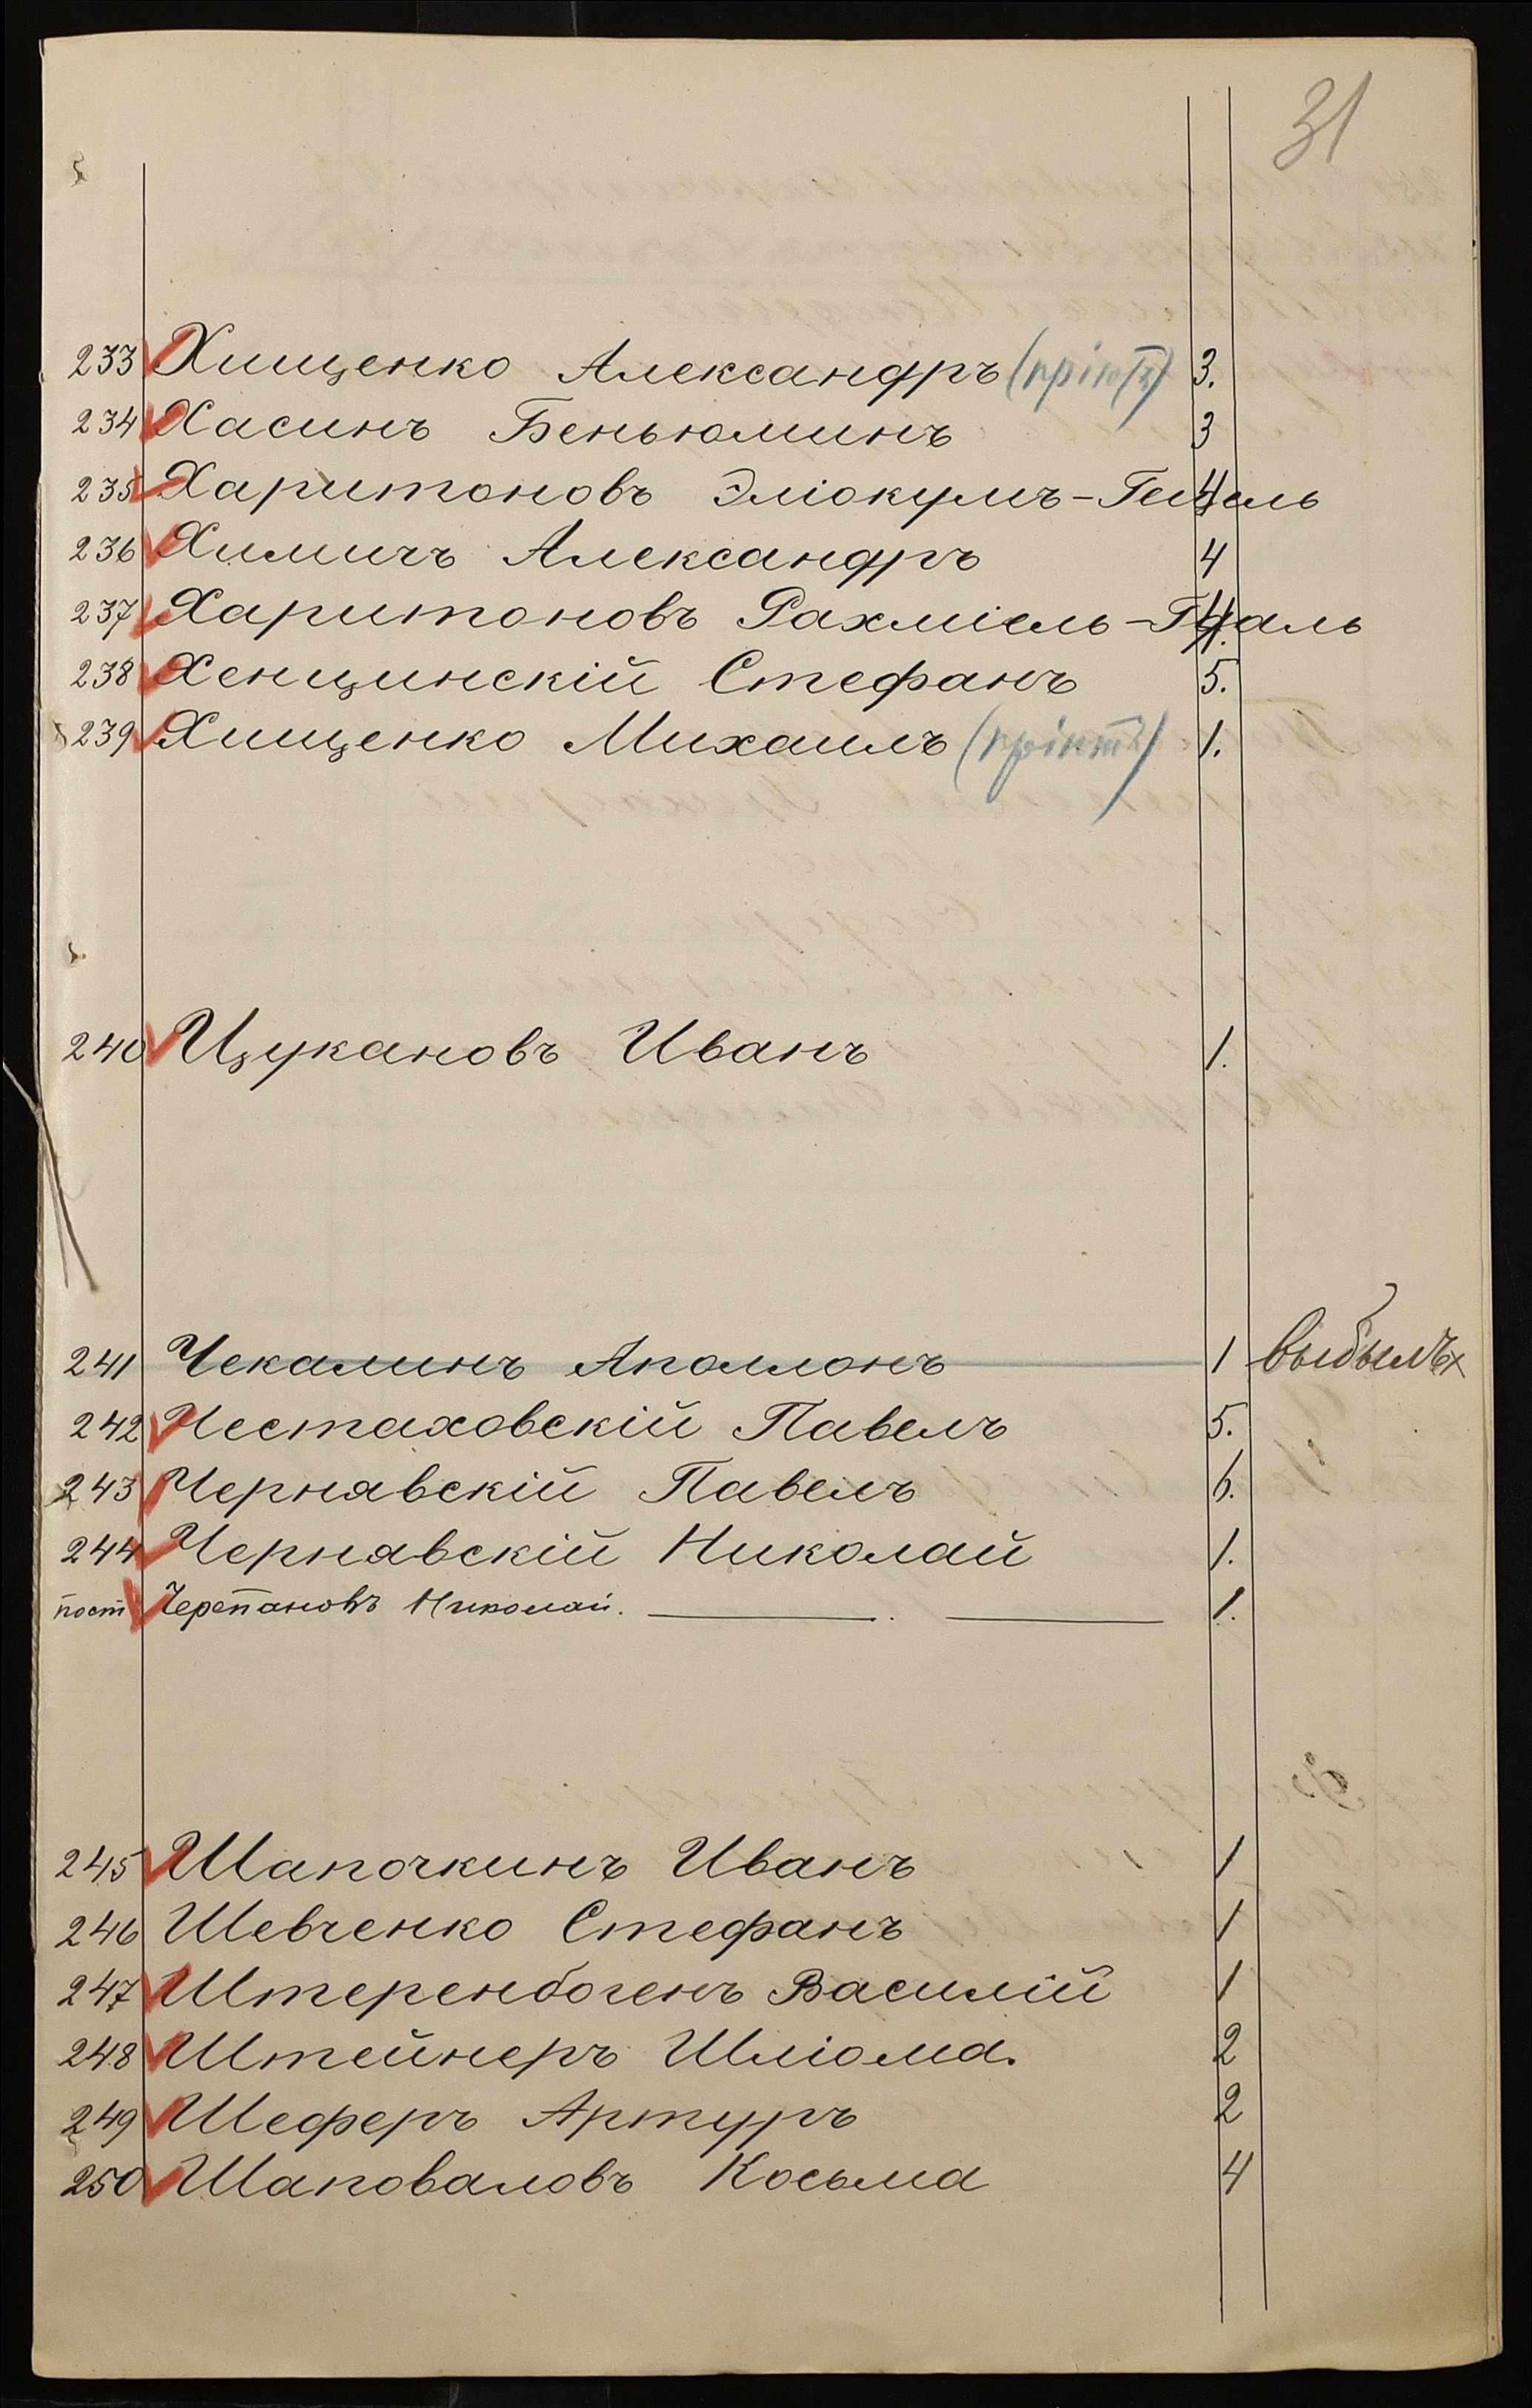 31
233 Хищенко Александръ (пріютъ) 3.
234 Хасинъ Беньюминъ 3
235 Харитоновъ Эліокумъ-Гецель 4
236 Химичъ Александръ 4
237 Харитоновъ Рахміель-Гцаль 4.
238 Хенцинскій Стефанъ 5.
239 Хищенко Михаилъ (пріютъ) 1.
240 Цукановъ Иванъ 1.
241 Чекалинъ Аполлонъ 1 выбылъ
242 Честаховскій Павелъ 5.
243 Чернявскій Павелъ 6.
244 Чернявскій Николай 1.
пост Черепановъ Николай. 1.
245 Шапочкинъ Иванъ 1
246 Шевченко Стефанъ 1
247 Штеренбогенъ Василій 1
248 Штейнеръ Шліома. 2
249 Шеферъ Артуръ 2
250 Шаповаловъ Косьма 4